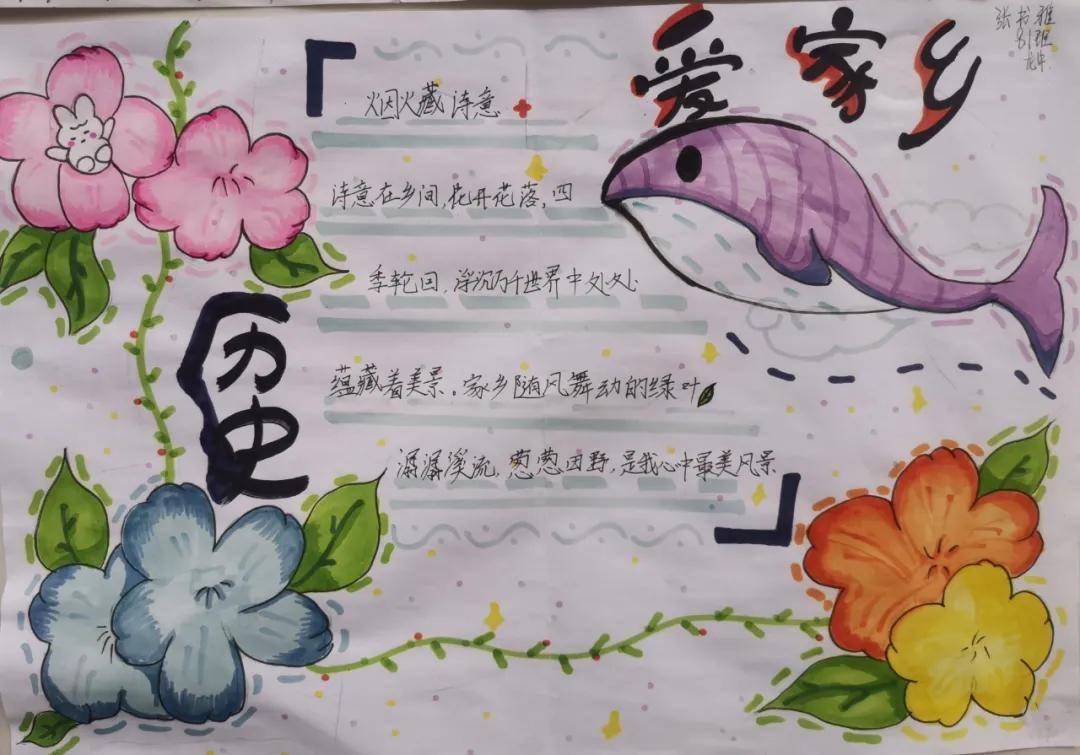 爱家乡
张书雅
81班
历史
烟火藏诗意
诗意在乡间,花开花落,四
季轮回,浮沉万千世界中处处
蕴藏着美景。家乡随风舞动的绿叶
潺潺溪流,葱葱田野,是我心中最美风景